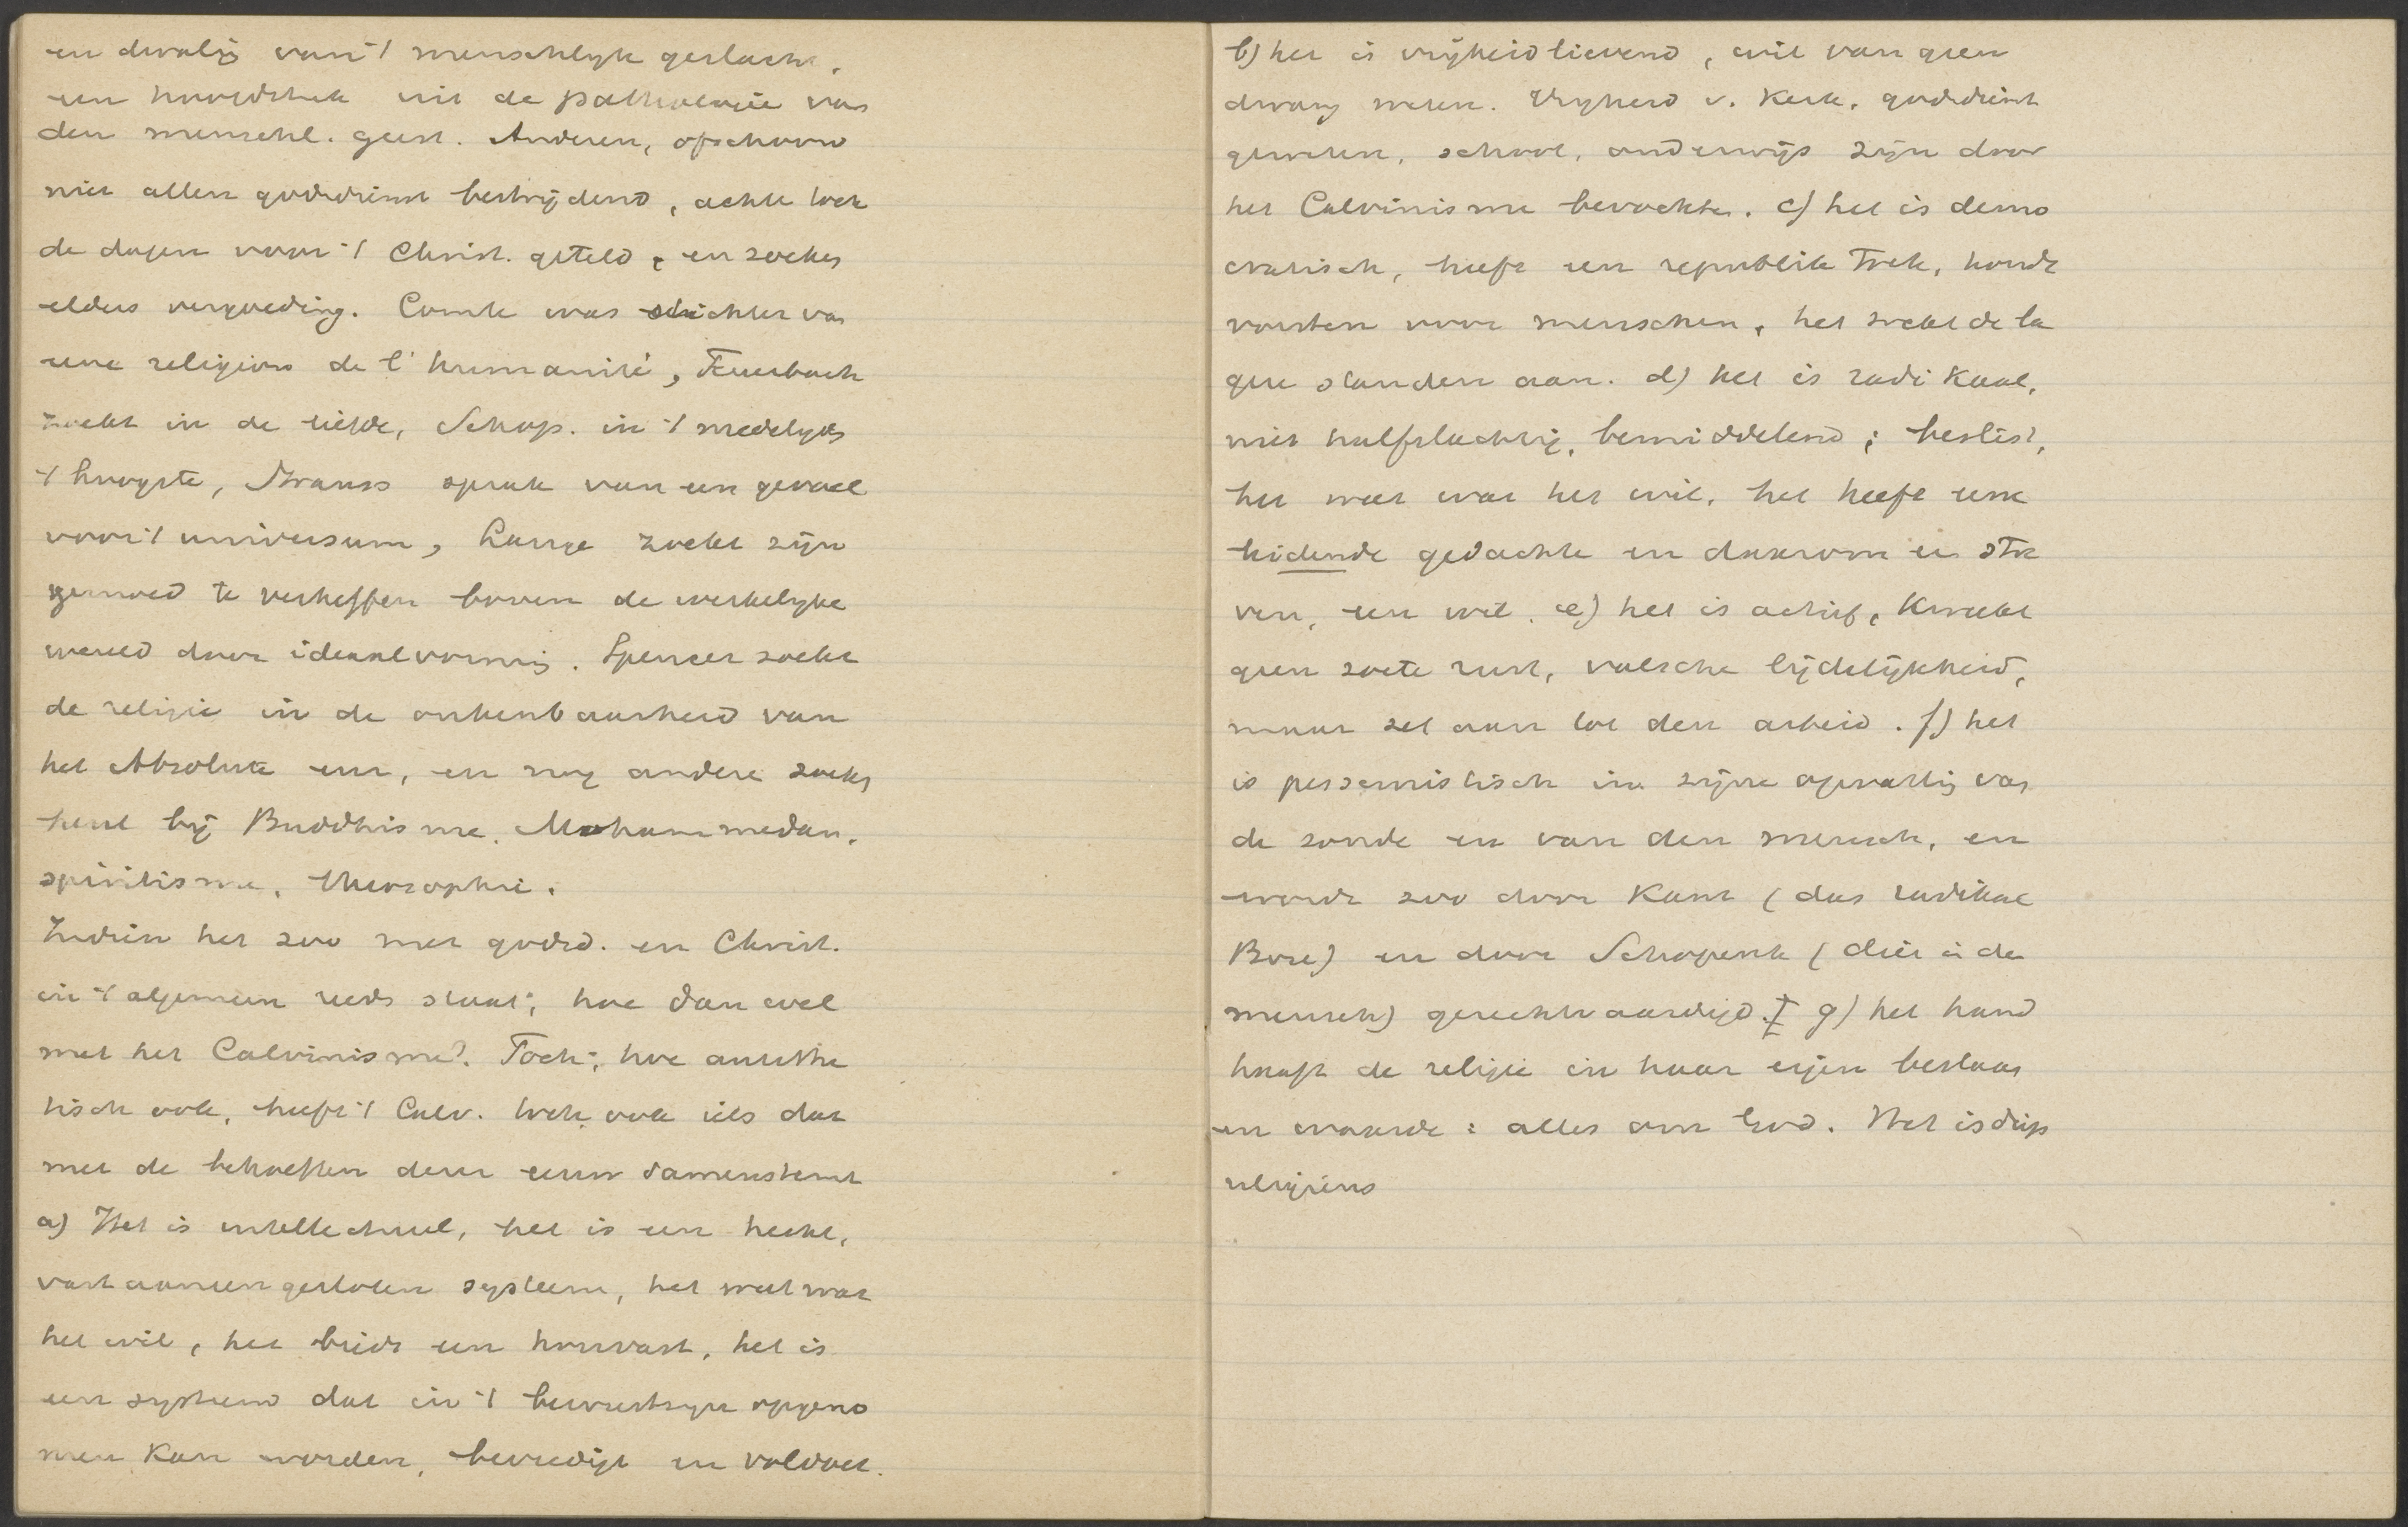 en dwaling van 't menschlyk geslacht.
een hoofdstuk uit de pathologie van
den menschl. geest. Anderen, ofschoon
niet allen godsdienst bestrijdend, achten toch
de dagen voor 't Christ. geteld, en zoeken
elders vergoeding. Comte was stichter van
une religion de l'humanité, Feuerbach
zoekt in de liefde, Schop. in 't medelyden
't hoogste, Strauss sprak van een gevoel
voor 't universum, Lange zoekt zijn
gemoed te verheffen boven de werkelyke
wereld door ideaalvorming. Spencer zoekt
de religie in de onkenbaarheid van
het Absolute enz., en nog andere zoeken
heul bij Buddhisme, Mohammedan.
spiritisme, theosophie.
Indien het zoo met godsd. en Christ.
in 't algemeen reeds staat; hoe dan wel
met het Calvinisme? Toch; hoe antithe
tisch ook, heeft 't Calv. toch ook iets dat
met de behoeften dezer eeuw samenstemt
a) Het is intellectueel, het is een hecht,
vast aaneengesloten systeem, het weet wat
het wil, het biedt een houvast, het is
een systeem dat in 't bewustzyn opgeno
men kan worden, bevredigt en voldoet.
b) het is vrijheidlievend, wil van geen
dwang weten. Vryheid v. Kerk, godsdienst
geweten, school, onderwijs zijn door
het Calvinisme bevochten. c) het is demo
cratisch, heeft een republik. trek, houdt
vorsten voor menschen, het zoekt de la
gere standen aan. d) het is radikaal,
niet halfslachtig, bemiddelend; beslist,
het weet wat het wil, het heeft eene
leidende gedachte en daarom een stre
ven, een wil. e) het is actief, kweekt
geen zoete rust, valsche lijdelijkheid,
maar zet aan tot den arbeid. f) het
is pessimistisch in zijne opvatting van
de zonde en van den mensch, en
wordt zoo door Kant (das radikal
Böse) en door Schopenh (dier i de
mensch) gerechtvaardigd. g) het hand
haaft de religie in haar eigen bestaan
en waarde: alles om God. Het is diep
religieus